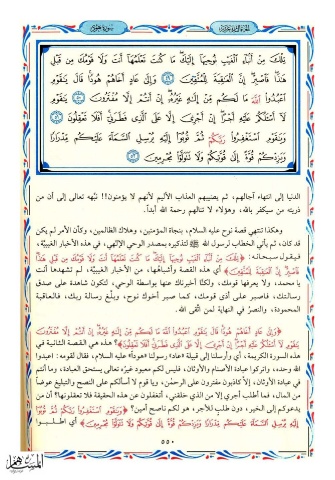 الجزء الثاني عشر
سورة هود
تِلْكَ مِنْ أَنۢبَآءِ ٱلْغَيْبِ نُوحِيهَآ إِلَيْكَ مَا كُنتَ تَعْلَمُهَآ أَنتَ وَلَا قَوْمُكَ مِن قَبْلِ
هَٰذَا فَٱصْبِرْ إِنَّ ٱلْعَٰقِبَةَ لِلْمُتَّقِينَ ٤٩ وَإِلَىٰ عَادٍ أَخَاهُمْ هُودًا قَالَ يَٰقَوْمِ
ٱعْبُدُوا۟ ٱللَّهَ مَا لَكُم مِّنْ إِلَٰهٍ غَيْرُهُۥٓ إِنْ أَنتُمْ إِلَّا مُفْتَرُونَ ٥٠ يَٰقَوْمِ
لَآ أَسْـَٔلُكُمْ عَلَيْهِ أَجْرًا إِنْ أَجْرِىَ إِلَّا عَلَى ٱلَّذِى فَطَرَنِىٓ أَفَلَا تَعْقِلُونَ ٥١
وَيَٰقَوْمِ ٱسْتَغْفِرُوا۟ رَبَّكُمْ ثُمَّ تُوبُوٓا۟ إِلَيْهِ يُرْسِلِ ٱلسَّمَآءَ عَلَيْكُم مِّدْرَارًا
وَيَزِدْكُمْ قُوَّةً إِلَىٰ قُوَّتِكُمْ وَلَا تَتَوَلَّوْا۟ مُجْرِمِينَ ٥٢
الدنيا إلى انتهاء آجالهم، ثم يصيبهم العذاب الأليم لأنهم لا يؤمنون!! نبَّه تعالى إلى أن من
ذريته من سيكفر بالله، وهؤلاء لا تنالهم رحمة الله أبداً.
وهكذا تنتهي قصة نوح عليه السلام، بنجاة المؤمنين، وهلاك الظالمين، وكأن الأمر لم يكن
قد كان، ثم يأتي الخطاب لرسول الله ﷺ لتذكيره بمصدر الوحي الإلهي، في هذه الأخبار الغيبية،
فيقول سبحانه: ﴿تِلْكَ مِنْ أَنبَاءِ الْغَيْبِ نُوحِيهَا إِلَيْكَ مَا كُنتَ تَعْلَمُهَا أَنتَ وَلَا قَوْمُكَ مِن قَبْلِ هَٰذَا
فَاصْبِرْ إِنَّ الْعَاقِبَةَ لِلْمُتَّقِينَ﴾ أي هذه القصة وأشباهُها، من الأخبار الغيبيَّة، لم تشهدها أنت
يا محمد، ولا يعرفها قومك، ولكنا أخبرناك عنها بواسطة الوحي، لتكون شاهدة على صدق
رسالتك، فاصبر على أذى قومك، كما صبر أخوك نوح، وبلِّغ رسالة ربك، فالعاقبة
المحمودة، والنصرُ في النهاية لمن اتَّقى الله.
﴿وَإِلَىٰ عَادٍ أَخَاهُمْ هُودًا قَالَ يَا قَوْمِ اعْبُدُوا اللَّهَ مَا لَكُم مِّنْ إِلَٰهٍ غَيْرُهُ إِنْ أَنتُمْ إِلَّا مُفْتَرُونَ
يَا قَوْمِ لَا أَسْأَلُكُمْ عَلَيْهِ أَجْرًا إِنْ أَجْرِيَ إِلَّا عَلَى الَّذِي فَطَرَنِي أَفَلَا تَعْقِلُونَ﴾؟ هذه هي القصة الثانية في
هذه السورة الكريمة، أي وأرسلنا إلى قبيلة «عاد» رسولنا «هوداً» عليه السلام، فقال لقومه: اعبدوا
الله وحده، واتركوا عبادة الأصنام والأوثان، فليس لكم معبود غيرُه تعالى يستحق العبادة، وما أنتم
في عبادة الأوثان، إلاَّ كاذبون مفترون على الرحمن، ويا قوم لا أسألكم على النصح والتبليغ عوضاً
من المال، فما أطلب أجري إلا من الذي خلقني، أتتغفلون عن هذه الحقيقة فلا تعقلونها؟ أن من
يدعوكم إلى الخير، دون طلبٍ للأجر، هو لكم ناصح أمين؟ ﴿وَيَا قَوْمِ اسْتَغْفِرُوا رَبَّكُمْ ثُمَّ تُوبُوا
إِلَيْهِ يُرْسِلِ السَّمَاءَ عَلَيْكُم مِّدْرَارًا وَيَزِدْكُمْ قُوَّةً إِلَىٰ قُوَّتِكُمْ وَلَا تَتَوَلَّوْا مُجْرِمِينَ﴾ أي اطلبوا
٥٥٠